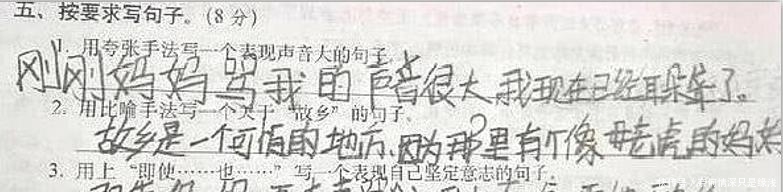 五、按要求写句子。(8分)
1. 用夸张手法写一个表现声音大的句子。
刚刚妈妈骂我的声音很大,我现在已经耳朵聋了。
2. 用比喻手法写一个关于“故乡”的句子。
故乡是一个可怕的地方,因为那里有个像母老虎的妈妈
3. 用上“即使……也……”写一个表现自己坚定意志的句子。